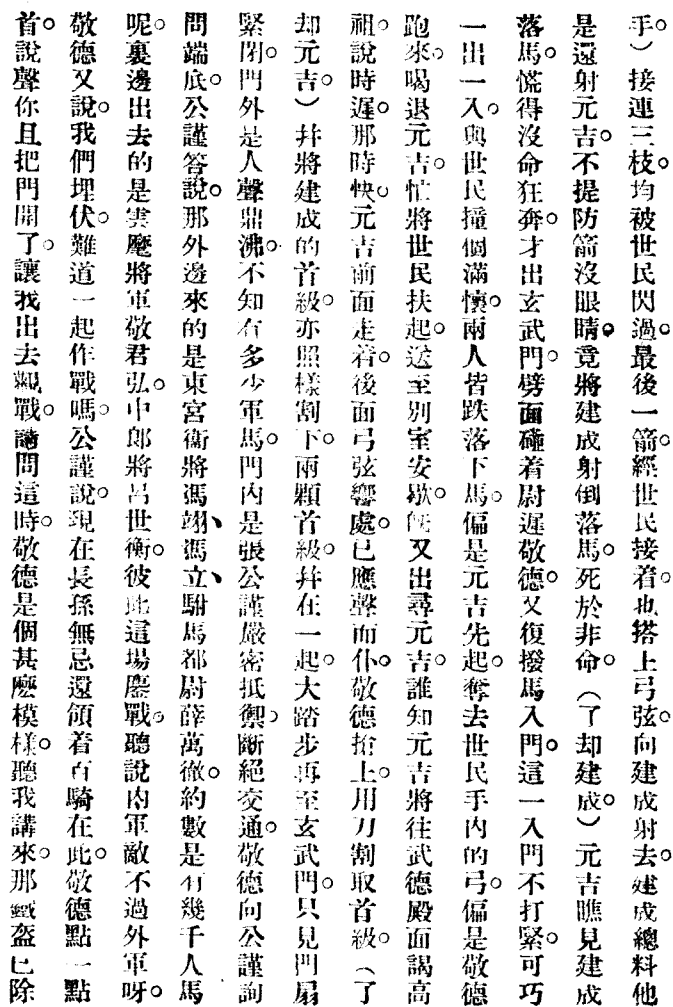 手）接連三枝。均被世民閃過。最後一箭。經世民接着。也搭上弓弦。向建成射去。建成總料他
是還射元吉。不提防箭沒眼睛。竟將建成射倒落馬。死於非命。（了却建成。）元吉瞧見建成
落馬。慌得沒命狂奔。才出玄武門。劈面碰着尉遲敬德。又復撥馬入門。這一入門不打緊。可巧
一出一入。與世民撞個滿懷。兩人皆跌落下馬。偏是元吉先起。奪去世民手內的弓。偏是敬德
跑來。喝退元吉。忙將世民扶起。送至別室安歇。又出尋元吉。誰知元吉將往武德殿面謁高
祖。說時遲。那時快。元吉前面走着。後面弓弦響處。已應聲而仆。敬德搶上。用刀割取首級。（了
却元吉。）幷將建成的首級。亦照樣割下。兩顆首級。幷在一起。大踏步再至玄武門。只見門扇
緊閉。門外是人聲鼎沸。不知有多少軍馬。門內是張公謹嚴密抵禦。斷絕交通。敬德向公謹詢
問端底。公謹答說。那外邊來的是東宮衛將馮翊、馮立、駙馬都尉薛萬徹。約數是有幾千人馬
呢。裏邊出去的是雲麾將軍敬君弘。中郎將呂世衡。彼此這場鏖戰。聽說內軍敵不過外軍呀。
敬德又說。我們埋伏。難道一起作戰嗎。公謹說。現在長孫無忌還領着百騎在此。敬德點一點
首。說聲你且把門開了。讓我出去觀戰。請問這時。敬德是個甚麽模樣。聽我講來。那鐵盔已除